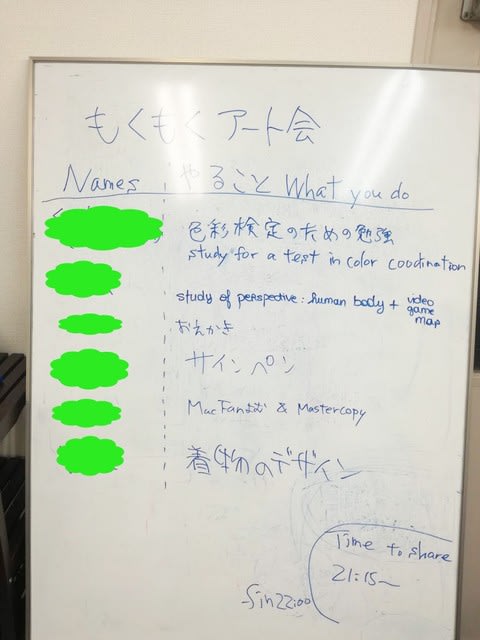 もくもくアート会
Names やること What you do
色彩検定のための勉強
study for a test in color coodination
study of perspective: human body + video game map
おえかき
サインペン
MacFanよむ & Mastercopy
着物のデザイン
Time to share
21:15~
fin 22:00